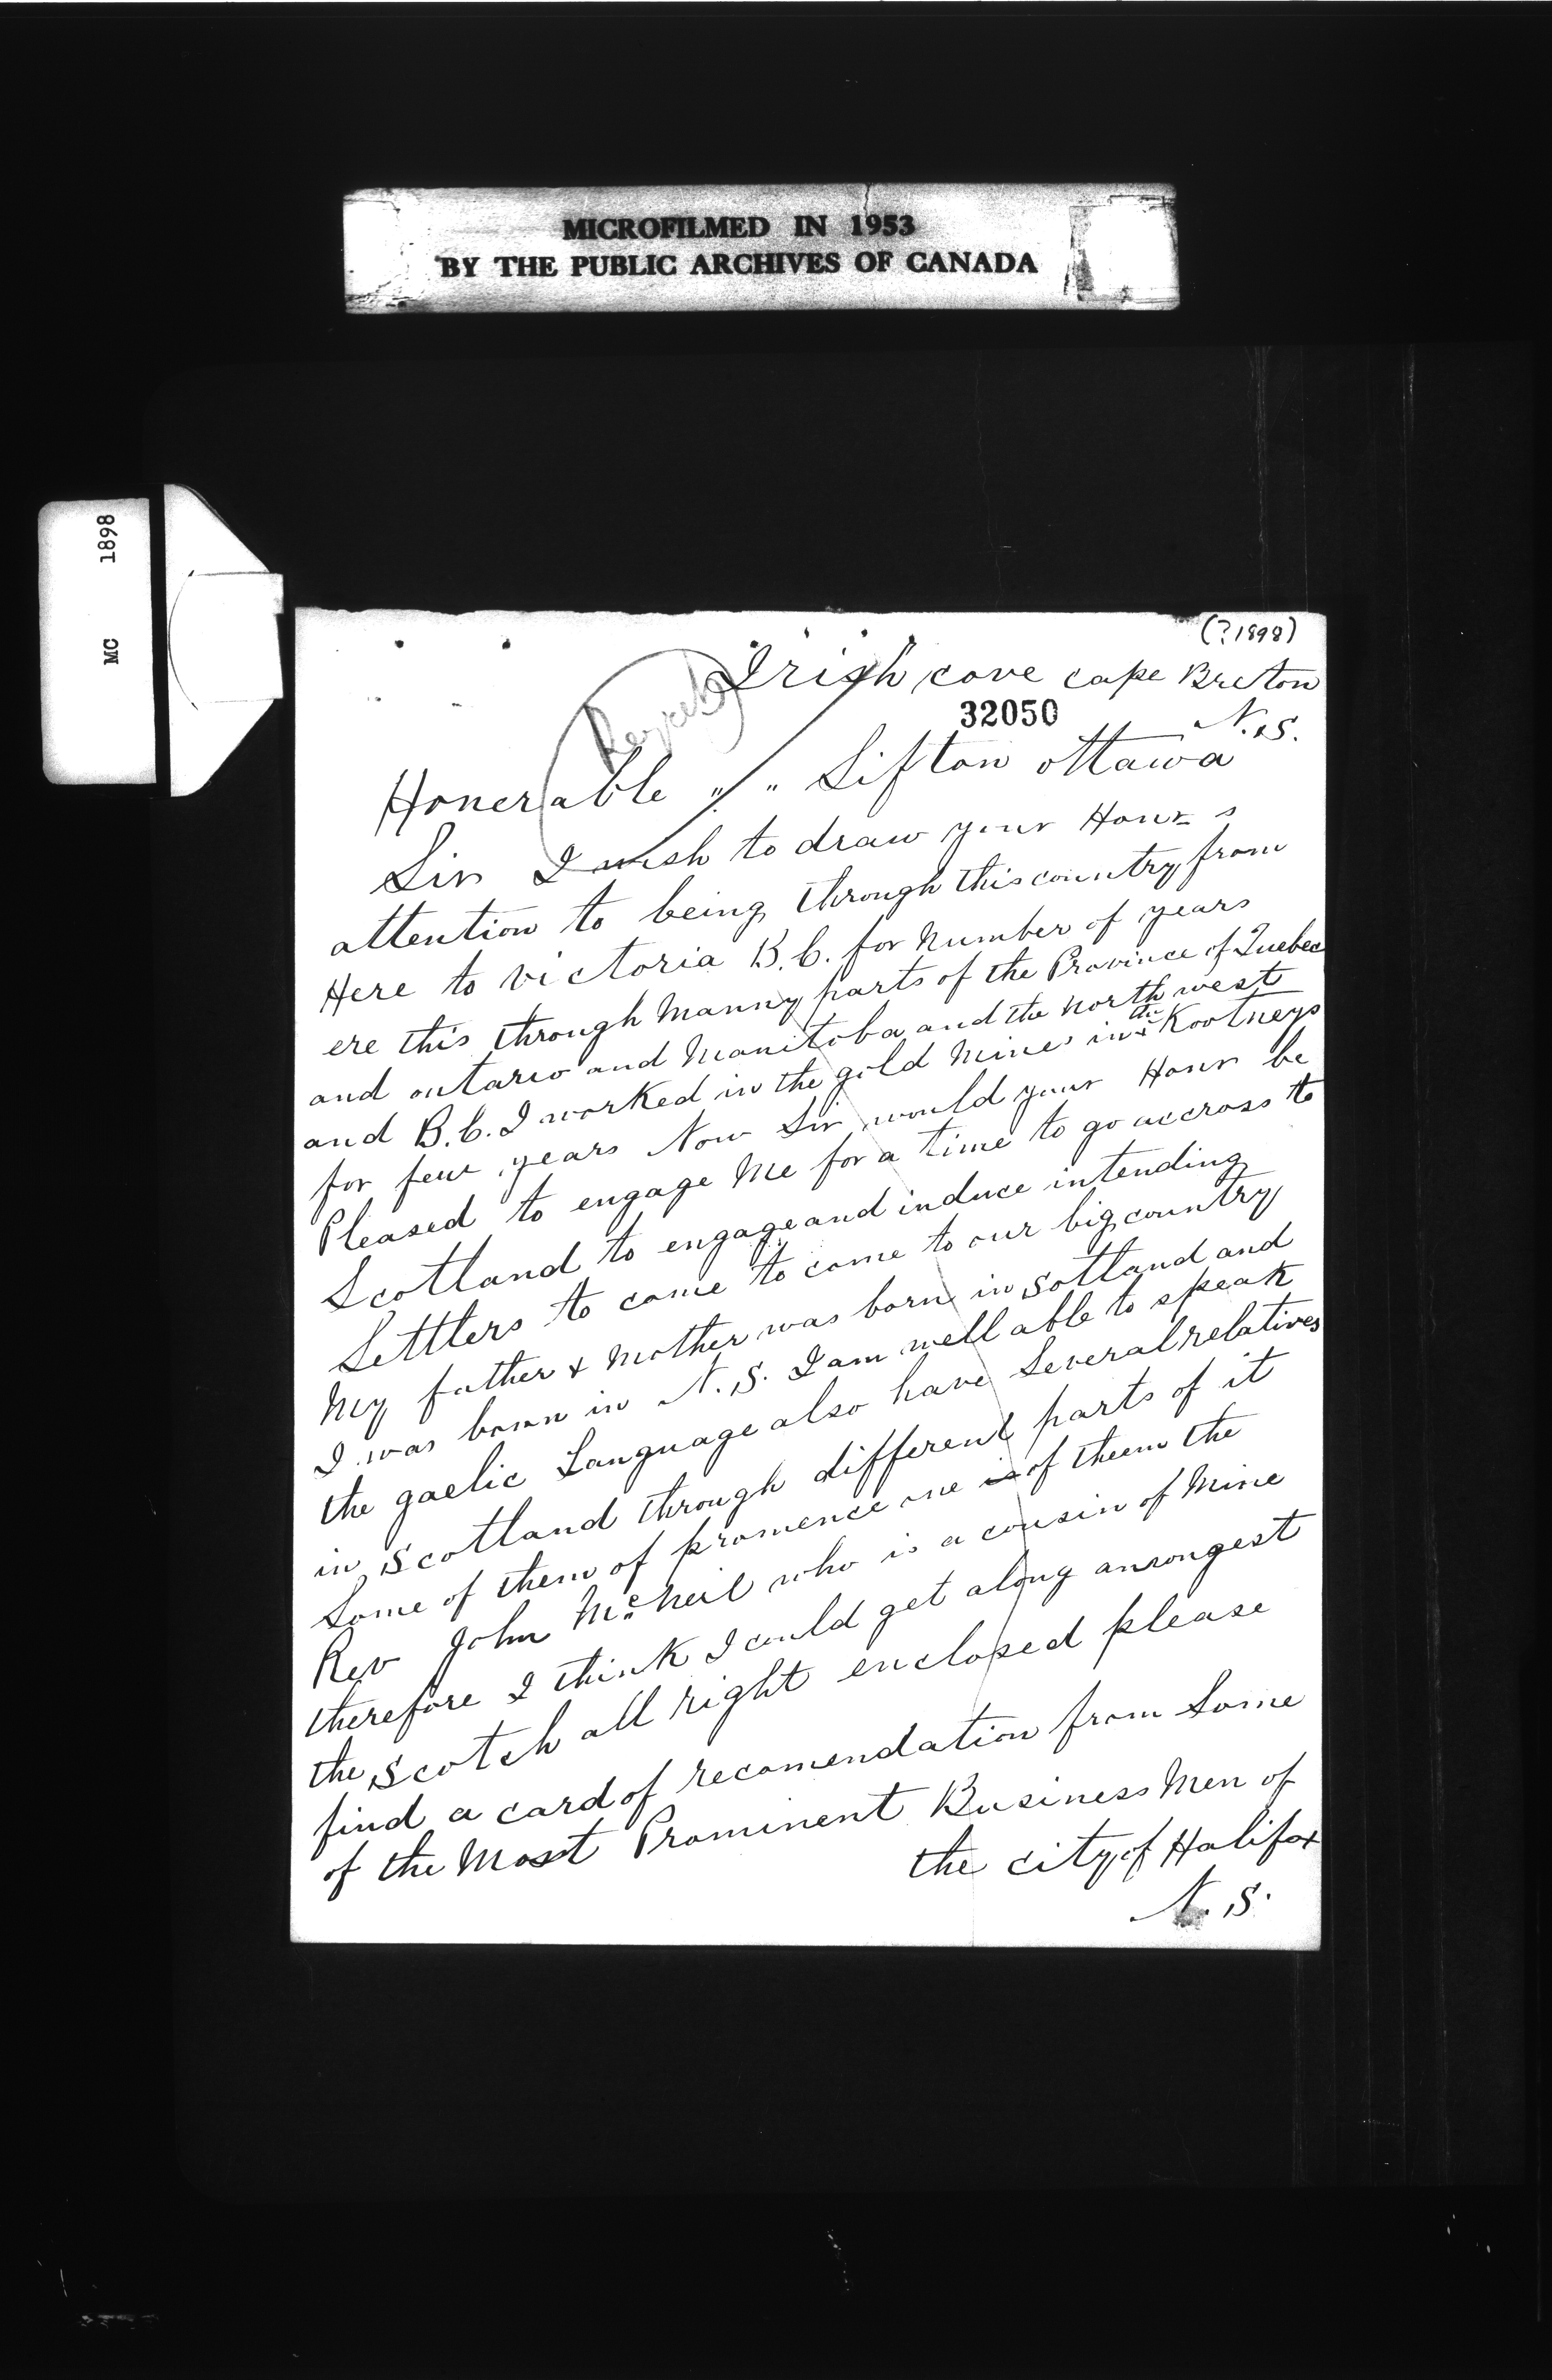 MICROFILMED IN 1953
BY THE PUBLIC ARCHIVES OF CANADA
MC 1898
(?1898)
Irish cove cape Breton
32050
N.S.
Regrets
Honerable " " Sifton ottawa
Sir I wish to draw your Honr s
attention to being through this country from
Here to victoria B.C. for Number of years
ere this through Manny parts of the Province of Quebec
and ontario and Manitoba and the north west
and B.C. I worked in the gold Mines in the Kootneys
for few years Now Sir would your Honr be
Pleased to engage Me for a time to go accross to
Scotland to engage and induce intending
Setttlers to come to come to our big country
My father & Mother was born in Sotland and
I was born in N.S. I am well able to speak
the gaelic Language also have Several relatives
in Scotland through different parts of it
Some of them of promence one is of theem the
Rev John Mc Neil who is a cousin of Mine
therefore I think I could get along amongest
the Scotch all right enclosed please
find a card of recomendation from Some
of the Most Prominent Business Men of
the city of Halifax
N.S.